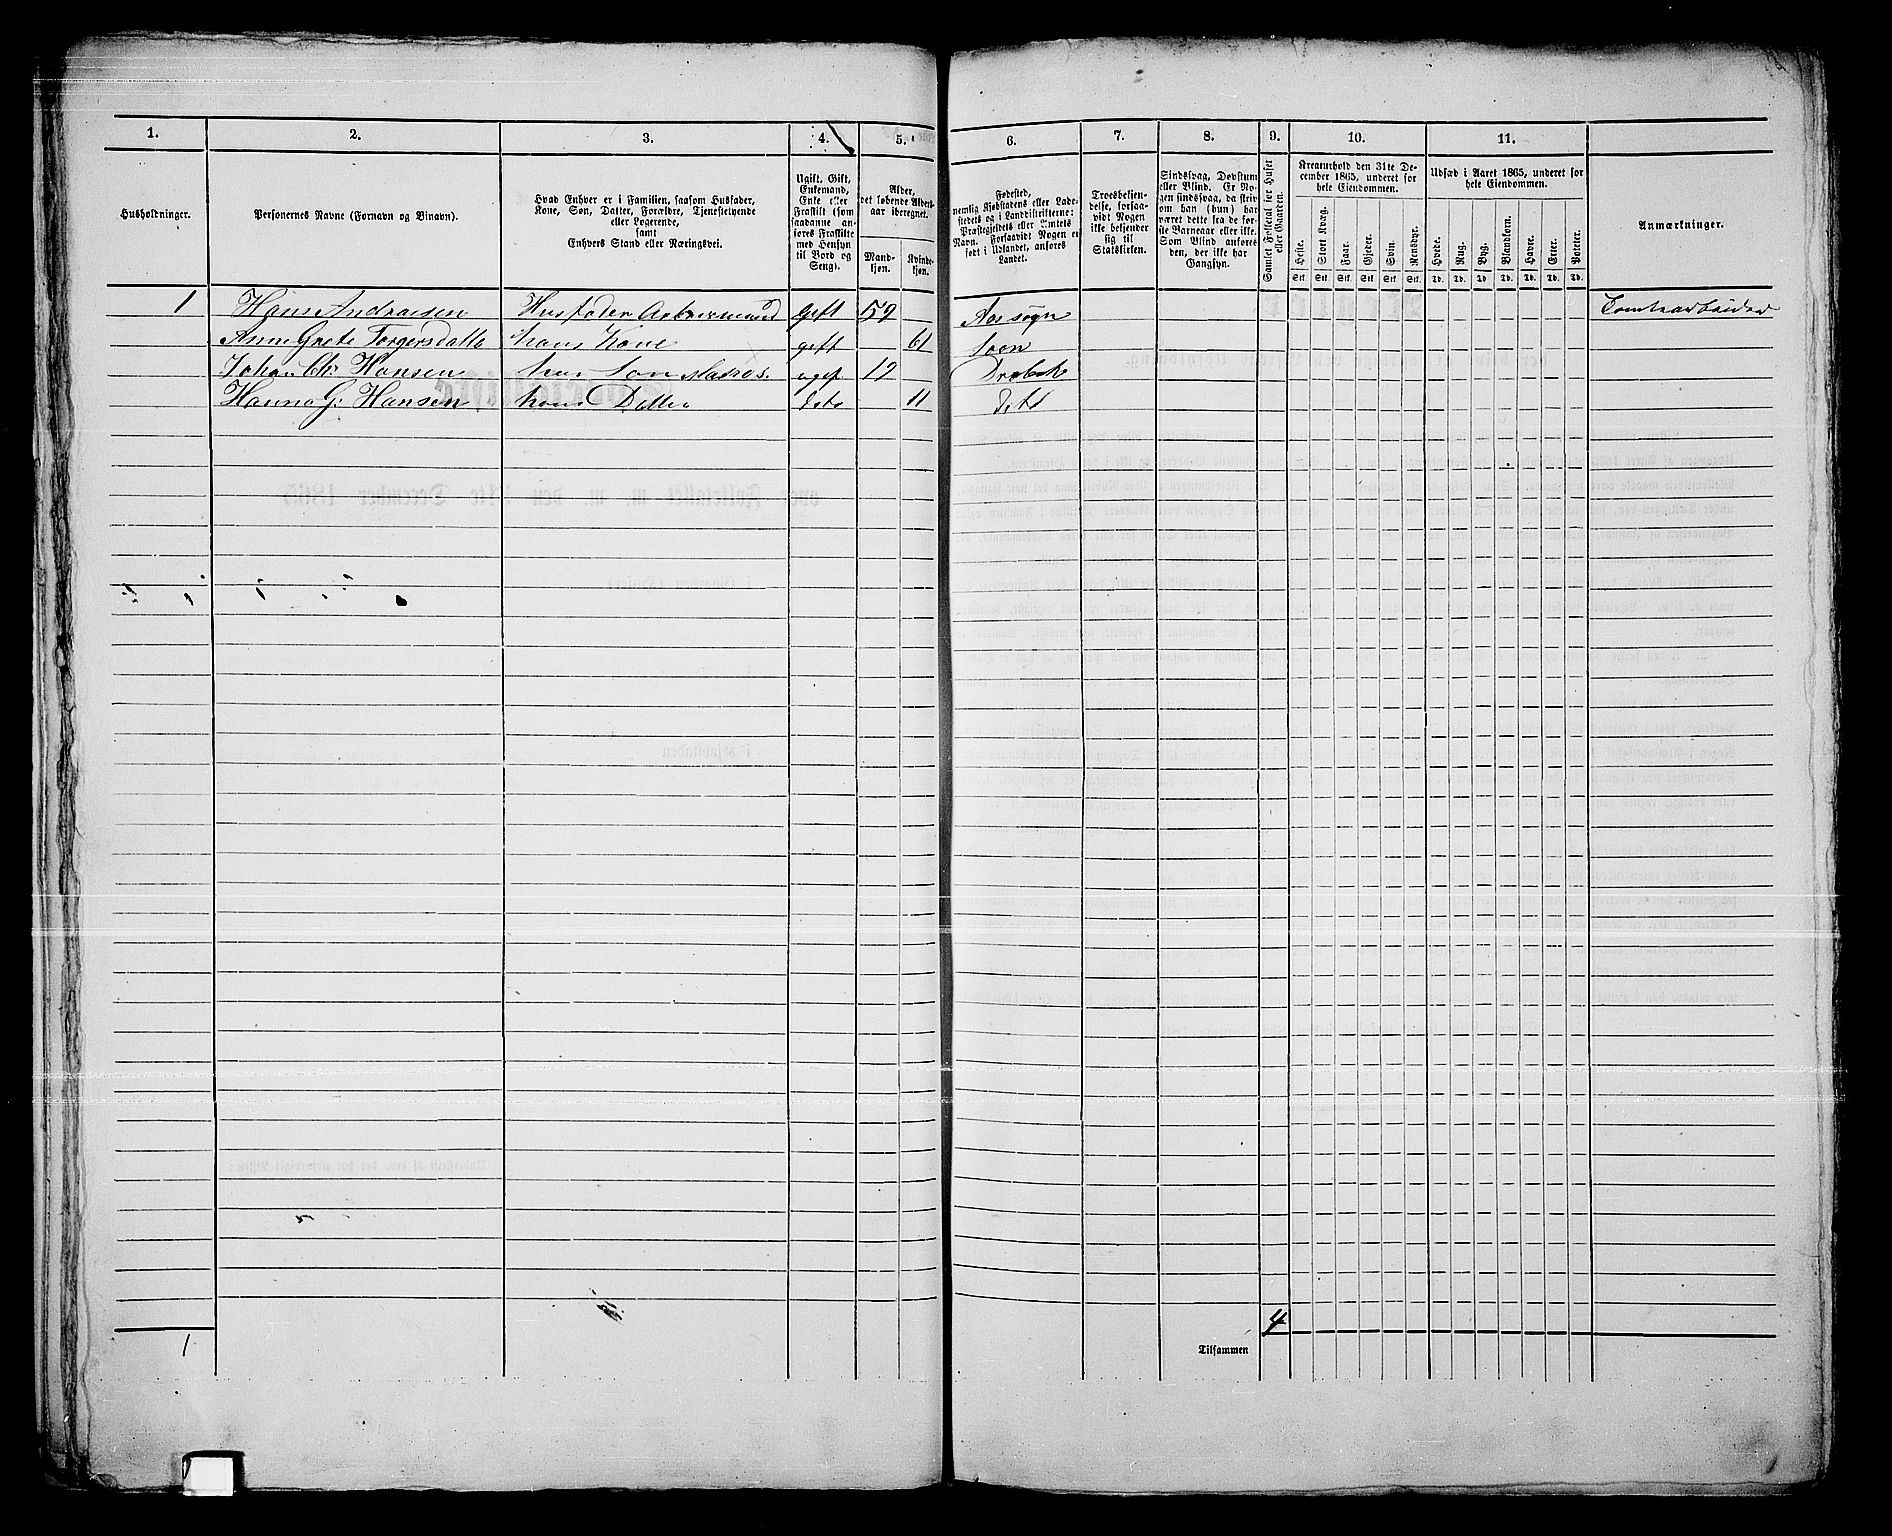 1. 2. 3. 4. 5. 6. 7. 8. 9. 10. 11.
Husholdninger.
Personernes Navne (Fornavn og Vinavn).
Hvad Enhver er i Familien, saasom Husfader,
Kone, Søn, Datter, Forældre, Tjenestetyende
eller Logerende,
samt
Enhvers Stand eller Næringsvei.
Ugift, Gift,
Enkemand,
Enke eller
Fraskilt (som
saadanne an-
føres Fraskilte
med Hensyn
til Bord og
Seng).
Alder,
det løbende Alders-
aar iberegnet.
Mand-
kjøn.
Kvinde-
kjøn.
Fødested,
nemlig Kjøbstadens eller Lade-
stedets og i Landdistrikterne:
Præstegjeldets eller Amtets
Navn. Forsaavidt Nogen er
født i Udlandet, anføres
Landet.
Troesbekjen-
delse, forsaa-
vidt Nogen
ikke bekjender
sig til
Statskirken.
Sindssvag, Døvstum
eller Blind. Er No-
gen sindssvag, da skriv
om han (hun) har
været dette fra de før-
ste Barneaar eller ikke.
Som Blind anføres
den, der ikke har
Gangsyn.
Samlet Folketal for Huset
eller Gaarden.
Kreaturhold den 31te De-
cember 1865, underet for
hele Eiendommen.
Heste. Stort Kvæg. Faar. Gjeder. Svin. Rensdyr.
Stk. Stk. Stk. Stk. Stk. Stk.
Udsæd i Aaret 1865, underet for
hele Eiendommen.
Hvede. Rug. Byg. Blandkorn. Havre. Erter. Poteter.
Td. Td. Td. Td. Td. Td. Td.
Anmærkninger.
1 Hans Andreasen Husfader gift 59 Aas sogn
Anne Grete Torgersdatter hans Kone gift 61 Soon
Johan Chr. Hansen hans Søn Matros. ugift 19 Drøbak
Hanna G. Hansen hans Datter dito 11 dito
4
1
Tilsammen